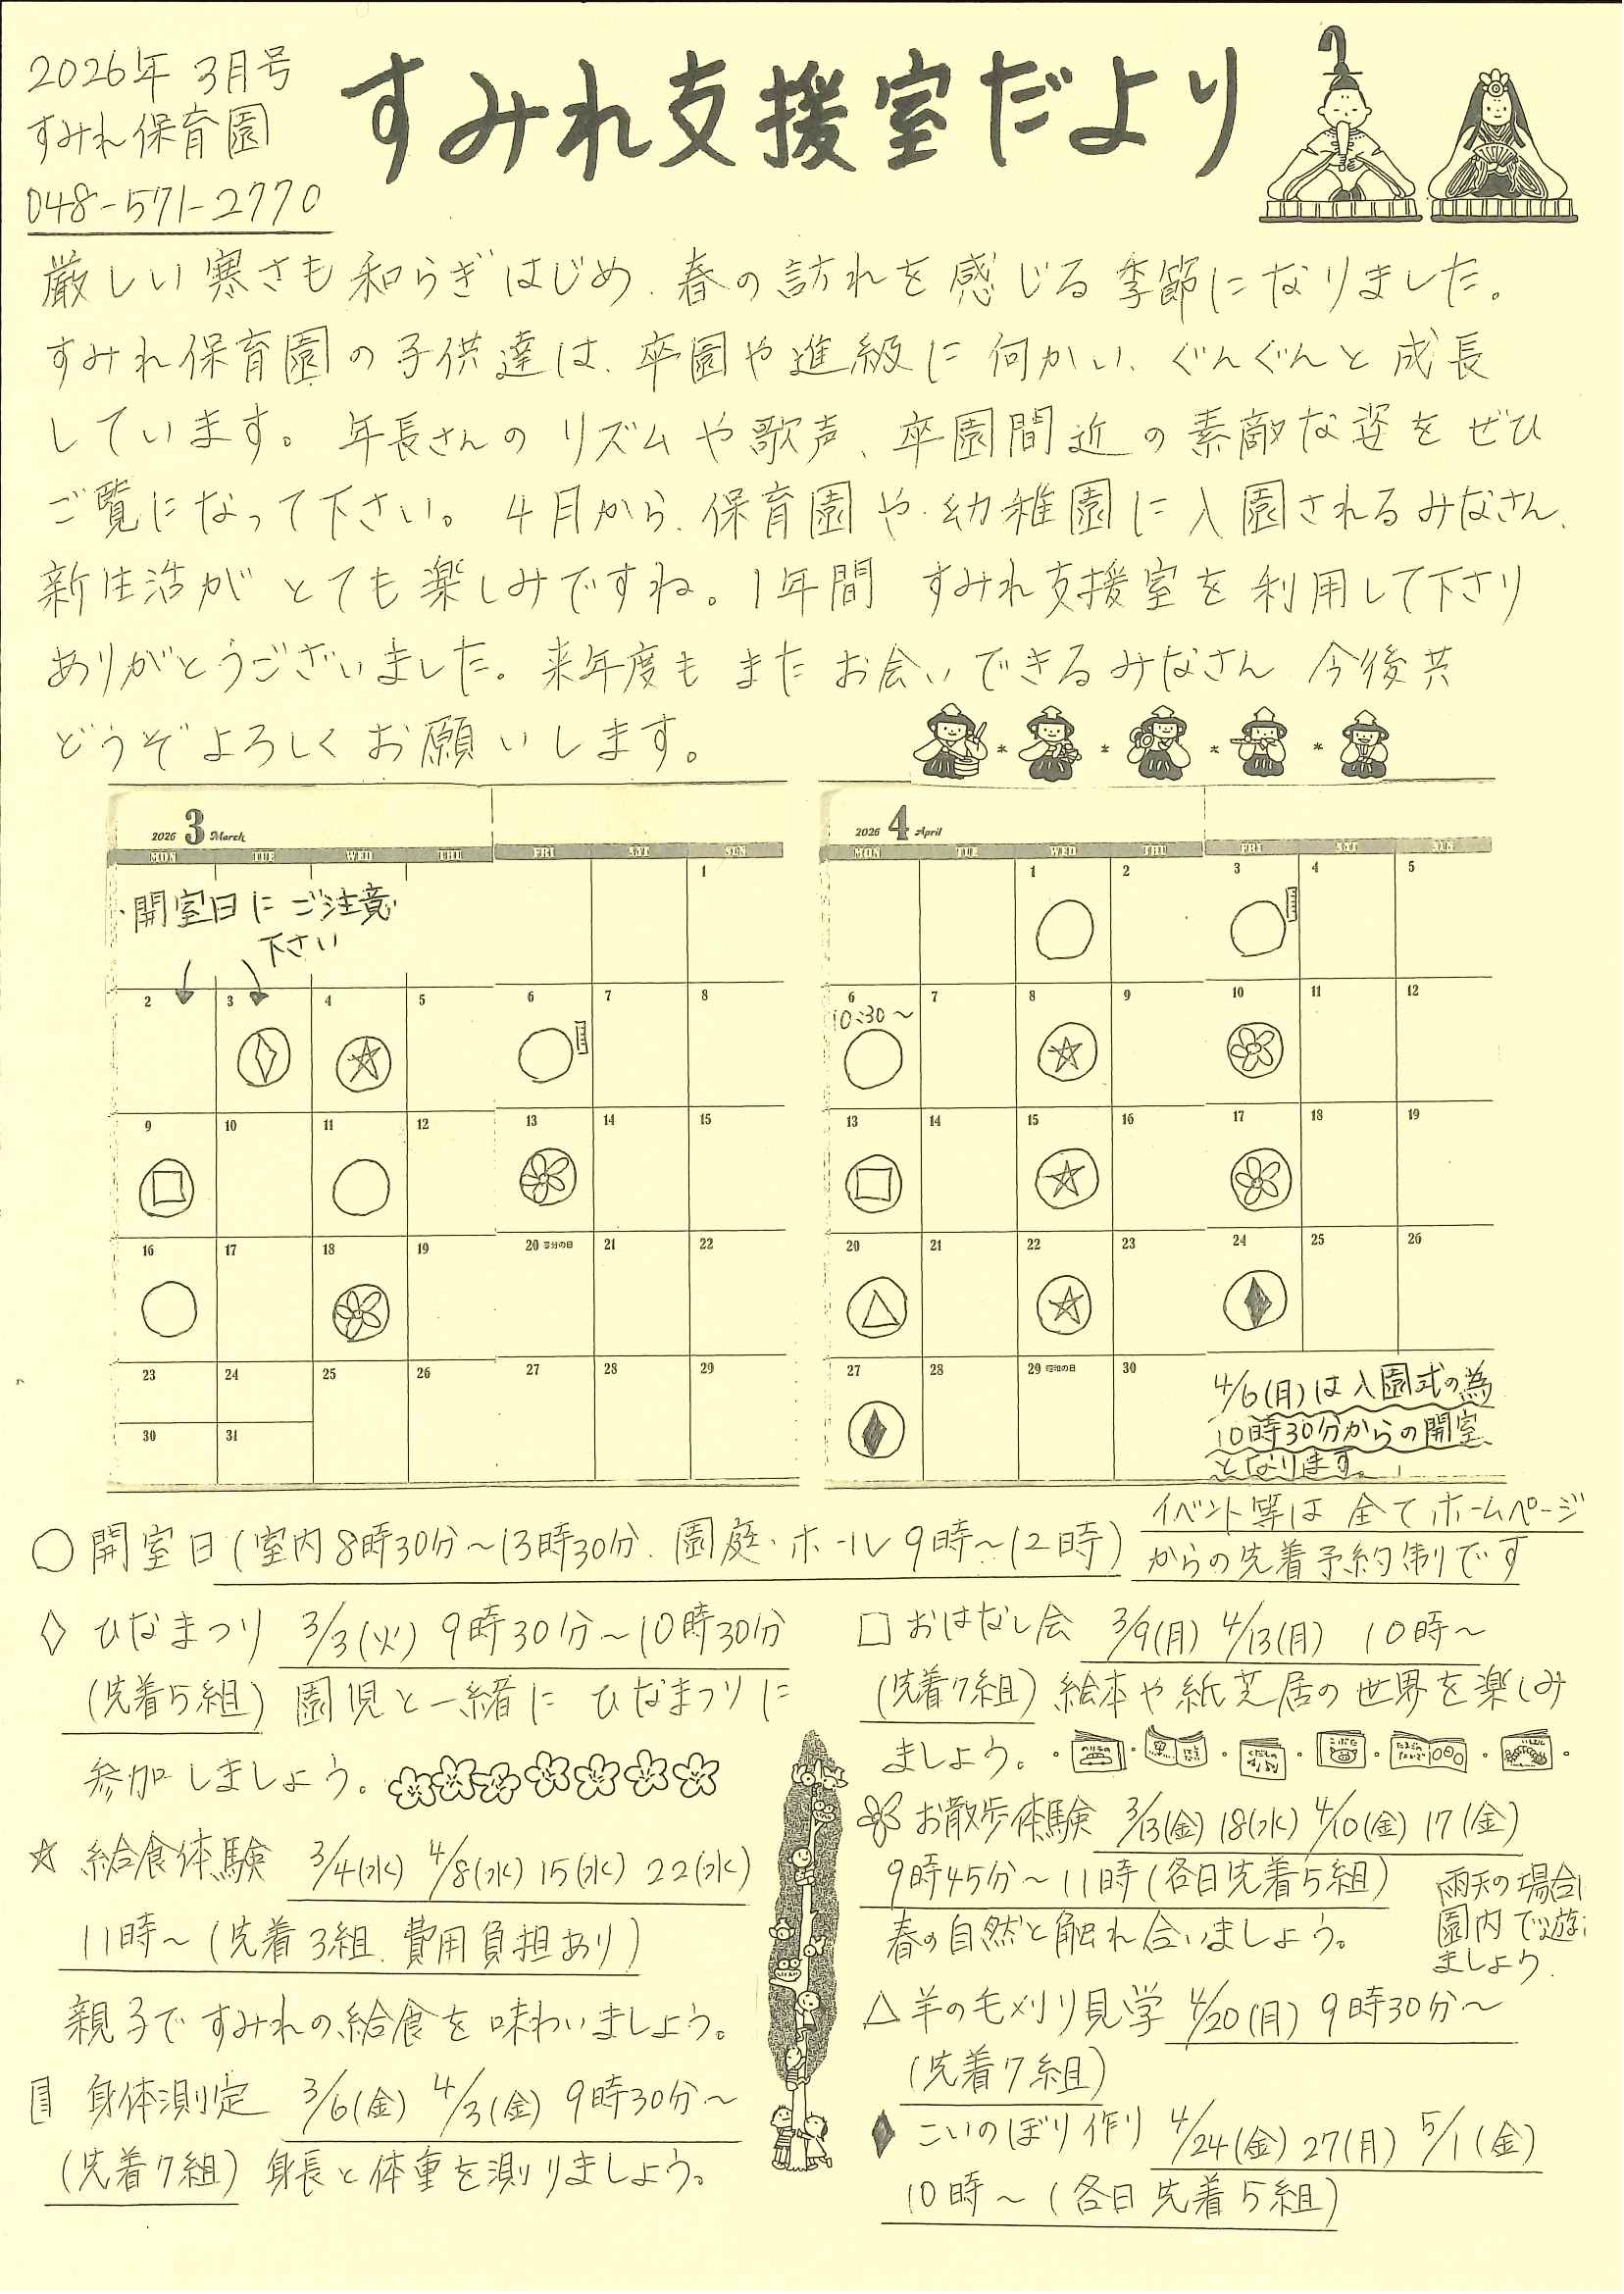 2026年 3月号
すみれ保育園
048-571-2770
すみれ支援室だより
厳しい寒さも和らぎはじめ、春の訪れを感じる季節になりました。
すみれ保育園の子供達は、卒園や進級に向かい、ぐんぐんと成長
しています。年長さんのリズムや歌声、卒園間近の素敵な姿をぜひ
ご覧になって下さい。4月から、保育園や幼稚園に入園されるみなさん、
新生活がとても楽しみですね。1年間 すみれ支援室を利用して下さり
ありがとうございました。来年度もまたお会いできるみなさん 今後共
どうぞよろしくお願いします。
2026 3 March
MON TUE WED THU FRI SAT SUN
1
開室日にご注意
下さい
2 3 4 5 6 7 8
9 10 11 12 13 14 15
16 17 18 19 20 春分の日 21 22
23 24 25 26 27 28 29
30 31
2026 4 April
MON TUE WED THU FRI SAT SUN
1 2 3 4 5
6 7 8 9 10 11 12
10:30〜
13 14 15 16 17 18 19
20 21 22 23 24 25 26
27 28 29 昭和の日 30
4/6(月)は入園式の為
10時30分からの開室
となります。
○開室日(室内8時30分〜13時30分、園庭・ホール9時〜12時)
イベント等は全てホームページ
からの先着予約制です
◇ ひなまつり 3/3(火) 9時30分〜10時30分
(先着5組) 園児と一緒にひなまつりに
参加しましょう。
☆ 給食体験 3/4(水) 4/8(水) 15(水) 22(水)
11時〜(先着3組、費用負担あり)
親子ですみれの給食を味わいましょう。
身体測定 3/6(金) 4/3(金) 9時30分〜
(先着7組) 身長と体重を測りましょう。
□ おはなし会 3/9(月) 4/13(月) 10時〜
(先着7組) 絵本や紙芝居の世界を楽しみ
ましょう。
お散歩体験 3/13(金) 18(水) 4/10(金) 17(金)
9時45分〜11時(各日先着5組)
春の自然と触れ合いましょう。
雨天の場合
園内で遊
ましょう。
△羊の毛刈り見学 4/20(月) 9時30分〜
(先着7組)
♦ こいのぼり作り 4/24(金) 27(月) 5/1(金)
10時〜(各日先着5組)